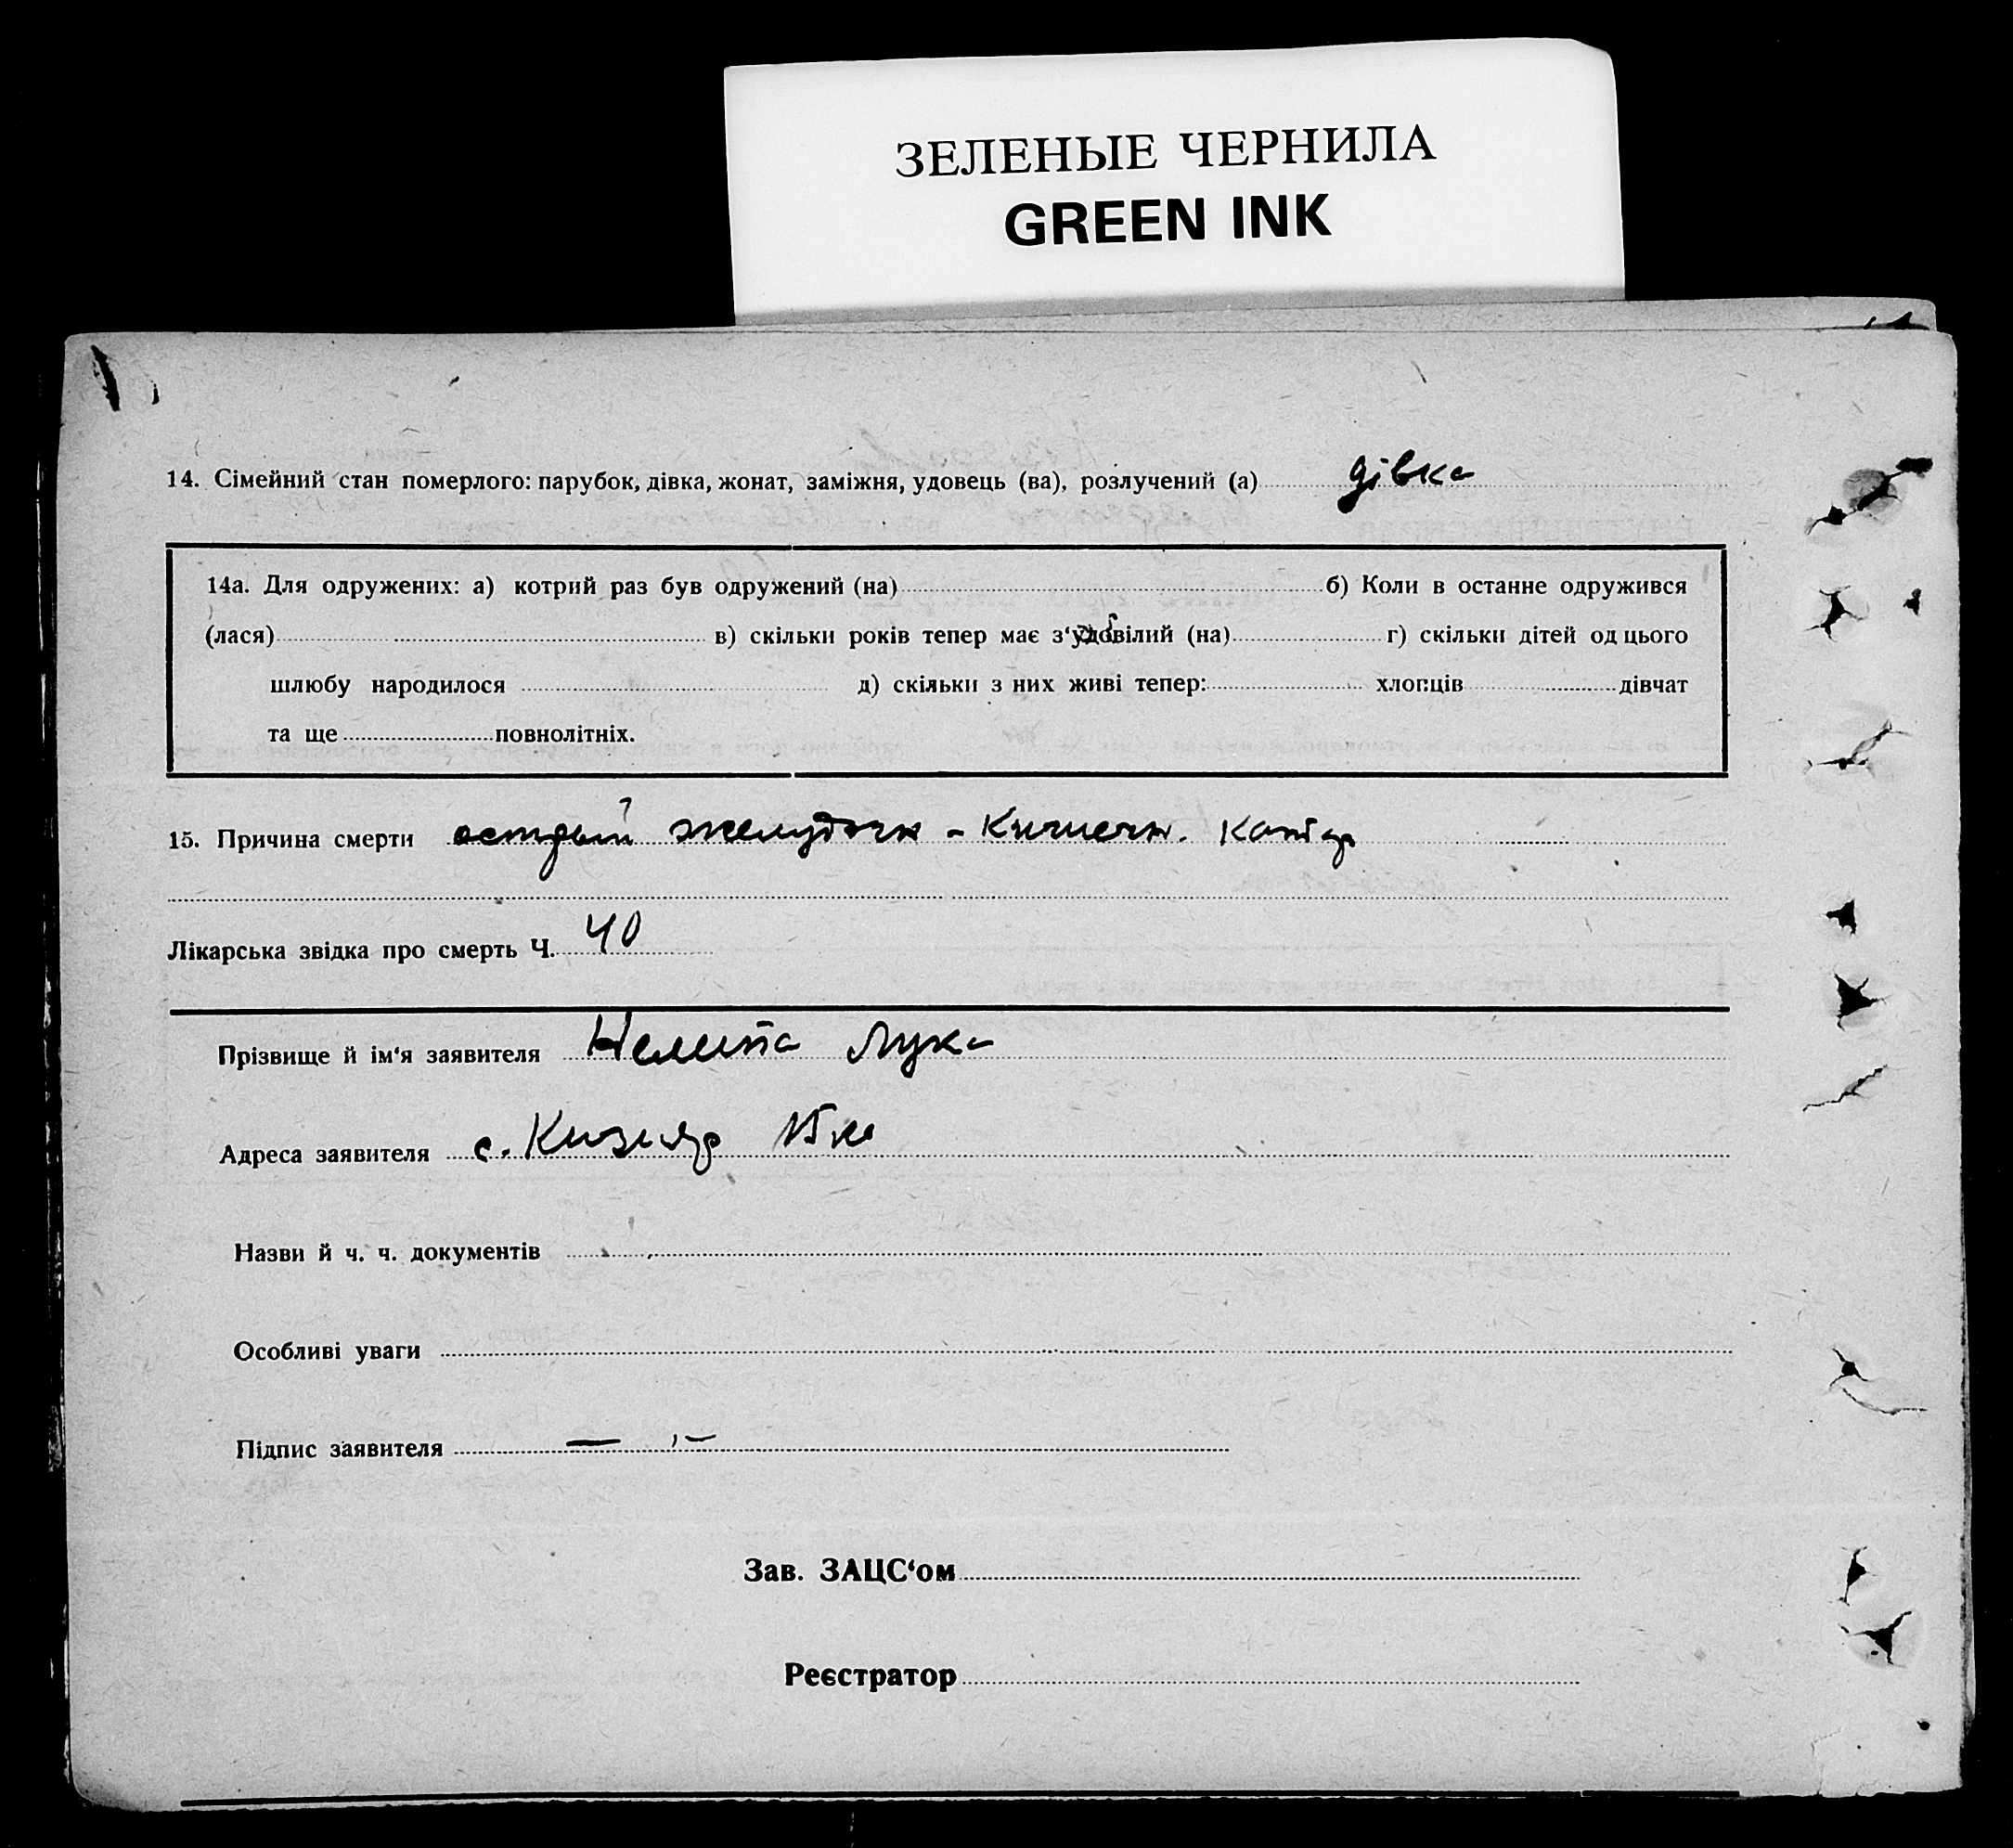 ЗЕЛЕНЫЕ ЧЕРНИЛА
GREEN INK
14. Сімейний стан померлого: парубок, дівка, жонат, заміжня, удовець (ва), розлучений (а) дівка
14а. Для одружених: а) котрий раз був одружений (на) б) Коли в останнє одружився
(лася) в) скільки років тепер має з‘удовілий (на) г) скільки дітей од цього
шлюбу народилося д) скільки з них живі тепер: хлопців дівчат
та ще повнолітніх.
15. Причина смерти острый желудочн - Кишечн. катар
Лікарська звідка про смерть Ч. 40
Прізвище й ім‘я заявителя Нелипа Лука
Адреса заявителя с. Кизияр
Назви й ч. ч. документів
Особливі уваги
Підпис заявителя — —
Зав. ЗАЦС‘ом
Реєстратор